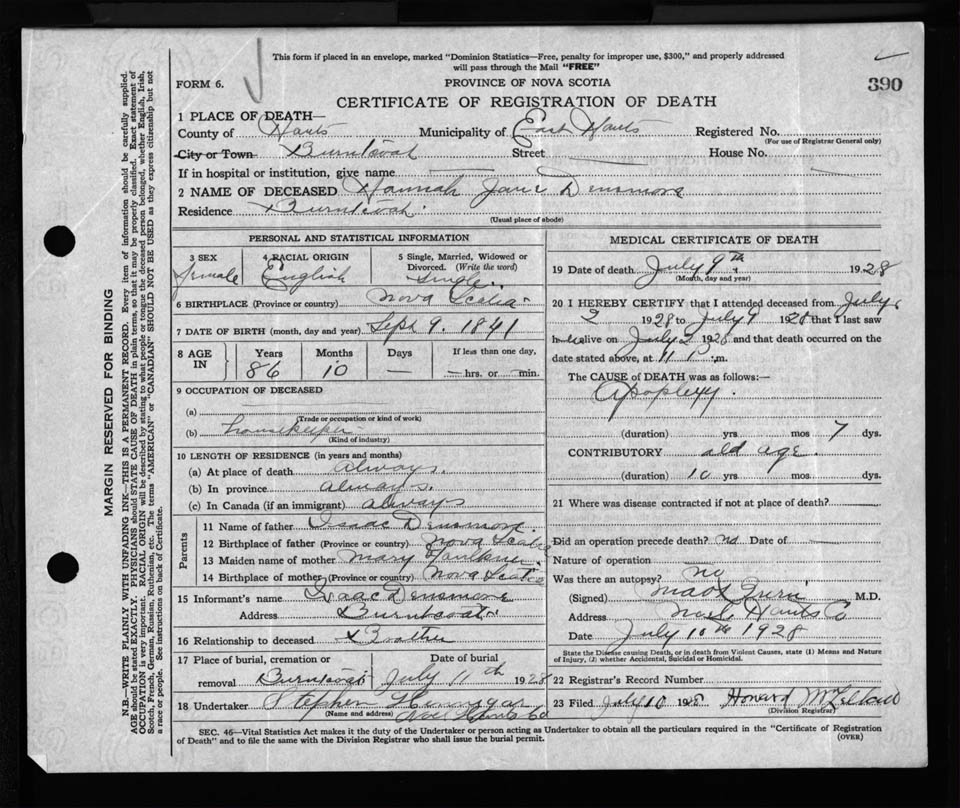 This form if placed in an envelope, marked "Dominion Statistics—Free, penalty for improper use, $300," and properly addressed
will pass through the Mail "FREE"
FORM 6.
PROVINCE OF NOVA SCOTIA
390
CERTIFICATE OF REGISTRATION OF DEATH
1 PLACE OF DEATH—
County of Hants Municipality of East Hants Registered No.
(For use of Registrar General only)
City or Town Burntcoat Street House No.
If in hospital or institution, give name
2 NAME OF DECEASED Hannah Jane Densmore
Residence Burntcoat
(Usual place of abode)
PERSONAL AND STATISTICAL INFORMATION
3 SEX 4 RACIAL ORIGIN 5 Single, Married, Widowed or
Divorced. (Write the word)
female English Single
6 BIRTHPLACE (Province or country) Nova Scotia
7 DATE OF BIRTH (month, day and year) Sept 9. 1841
8 AGE IN Years Months Days If less than one day,
86 10 — — hrs. or — min.
9 OCCUPATION OF DECEASED
(a)
(Trade or occupation or kind of work)
(b) housekeeper
(Kind of industry)
10 LENGTH OF RESIDENCE (in years and months)
(a) At place of death always.
(b) In province always.
(c) In Canada (if an immigrant) always
Parents
11 Name of father Isaac Densmore.
12 Birthplace of father (Province or country) Nova Scotia
13 Maiden name of mother Mary Faulkner
14 Birthplace of mother (Province or country) Nova Scotia
15 Informant's name Isaac Densmore
Address Burntcoat
16 Relationship to deceased Brother
17 Place of burial, cremation or Date of burial
removal Burntcoat July 11th 1928
18 Undertaker Stephen
(Name and address) Noel Hants Co
MEDICAL CERTIFICATE OF DEATH
19 Date of death July 9th 1928
(Month, day and year)
20 I HEREBY CERTIFY that I attended deceased from July
2 1928 to July 9 1928 that I last saw
h alive on July 2 1928 and that death occurred on the
date stated above, at m.
The CAUSE of DEATH was as follows:—
Apoplexy.
(duration) yrs. mos 7 dys.
CONTRIBUTORY old age.
(duration) 10 yrs. mos. dys.
21 Where was disease contracted if not at place of death?
Did an operation precede death? no Date of
Nature of operation
Was there an autopsy? no
(Signed) M.D.
Address Noel Hants Co
Date July 10th 1928
State the Disease causing Death, or in death from Violent Causes, state (1) Means and Nature
of Injury, (2) whether Accidental, Suicidal or Homicidal.
22 Registrar's Record Number
23 Filed July 10 1928 Howard
(Division Registrar)
SEC. 46—Vital Statistics Act makes it the duty of the Undertaker or person acting as Undertaker to obtain all the particulars required in the "Certificate of Registration
of Death" and to file the same with the Division Registrar who shall issue the burial permit.
(OVER)
MARGIN RESERVED FOR BINDING
N.B.—WRITE PLAINLY WITH UNFADING INK—THIS IS A PERMANENT RECORD. Every item of information should be carefully supplied.
AGE should be stated EXACTLY. PHYSICIANS should STATE CAUSE OF DEATH in plain terms, so that it may be properly classified. Exact statement of
OCCUPATION is very important. RACIAL ORIGIN will be described by stating to what people or tongue the deceased person belonged, whether English, Irish,
Scotch, French, German, Russian, Ruthenian, etc. The terms "AMERICAN" or "CANADIAN" SHOULD NOT BE USED as they express citizenship but not
a race or people. See instructions on back of Certificate.